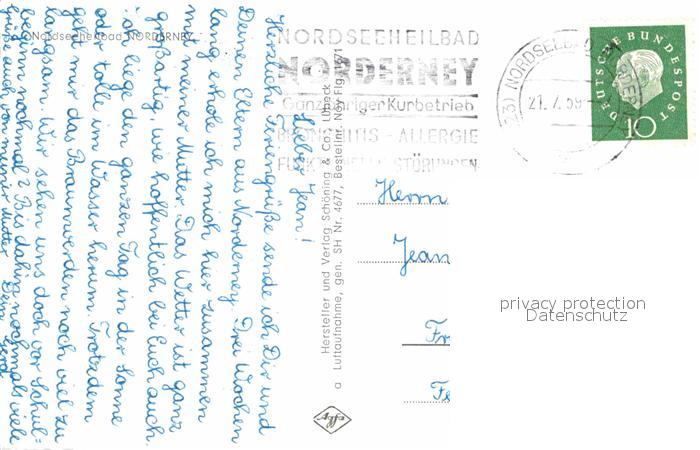 Nordseeheilbad NORDERNEY
Lieber Jean!
Herzliche Feriengrüße sende ich Dir und
Deinen Eltern aus Norderney. Drei Wochen
lang erhole ich mich hier zusammen
mit meiner Mutter. Das Wetter ist ganz
großartig, wie hoffentlich bei Euch auch.
Ich liege den ganzen Tag in der Sonne
oder tolle im Wasser herum. Trotzdem
geht mir das Braunwerden noch viel zu
langsam. Wir sehen uns doch vor Schul-
beginn nochmal? Bis dahin nochmals viele
Grüße auch von meiner Mutter Dein
Hersteller und Verlag Schöning & Co., Lübeck
a Luftaufnahme, gen. SH Nr. 4677, Bestellnr. Ney Flg. 1571
Agfa
NORDSEEHEILBAD
NORDERNEY
Ganzjähriger Kurbetrieb
BRONCHITIS - ALLERGIE
FUNKTIONELLE STÖRUNGEN
(23) NORDSEEBAD NORDERNEY
21.7.59
DEUTSCHE BUNDESPOST
10
Herrn
Jean
Fr
Fe
privacy protection
Datenschutz